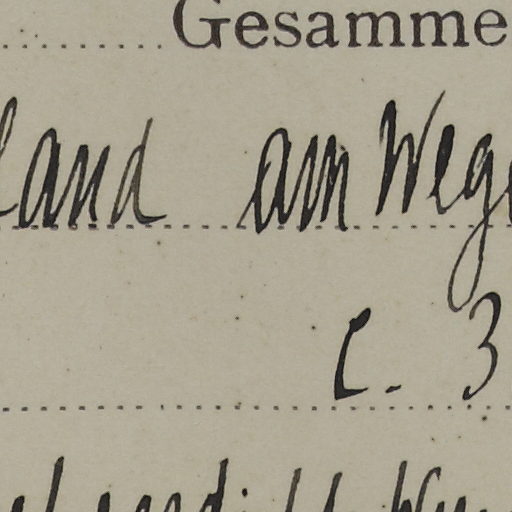 Gesamme
land am Wege
c. 3